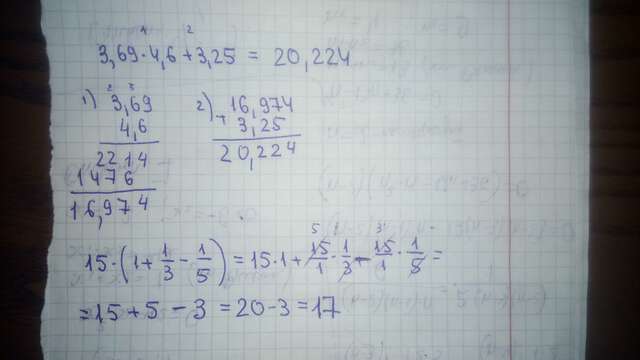 3,69·4,6+3,25 = 20,224
1) 3,69
4,6
2214
1476
16,974
2) 16,974
+ 3,25
20,224
15·(1+1/3-1/5)=15·1+15/1·1/3-15/1·1/5=
=15+5-3=20-3=17